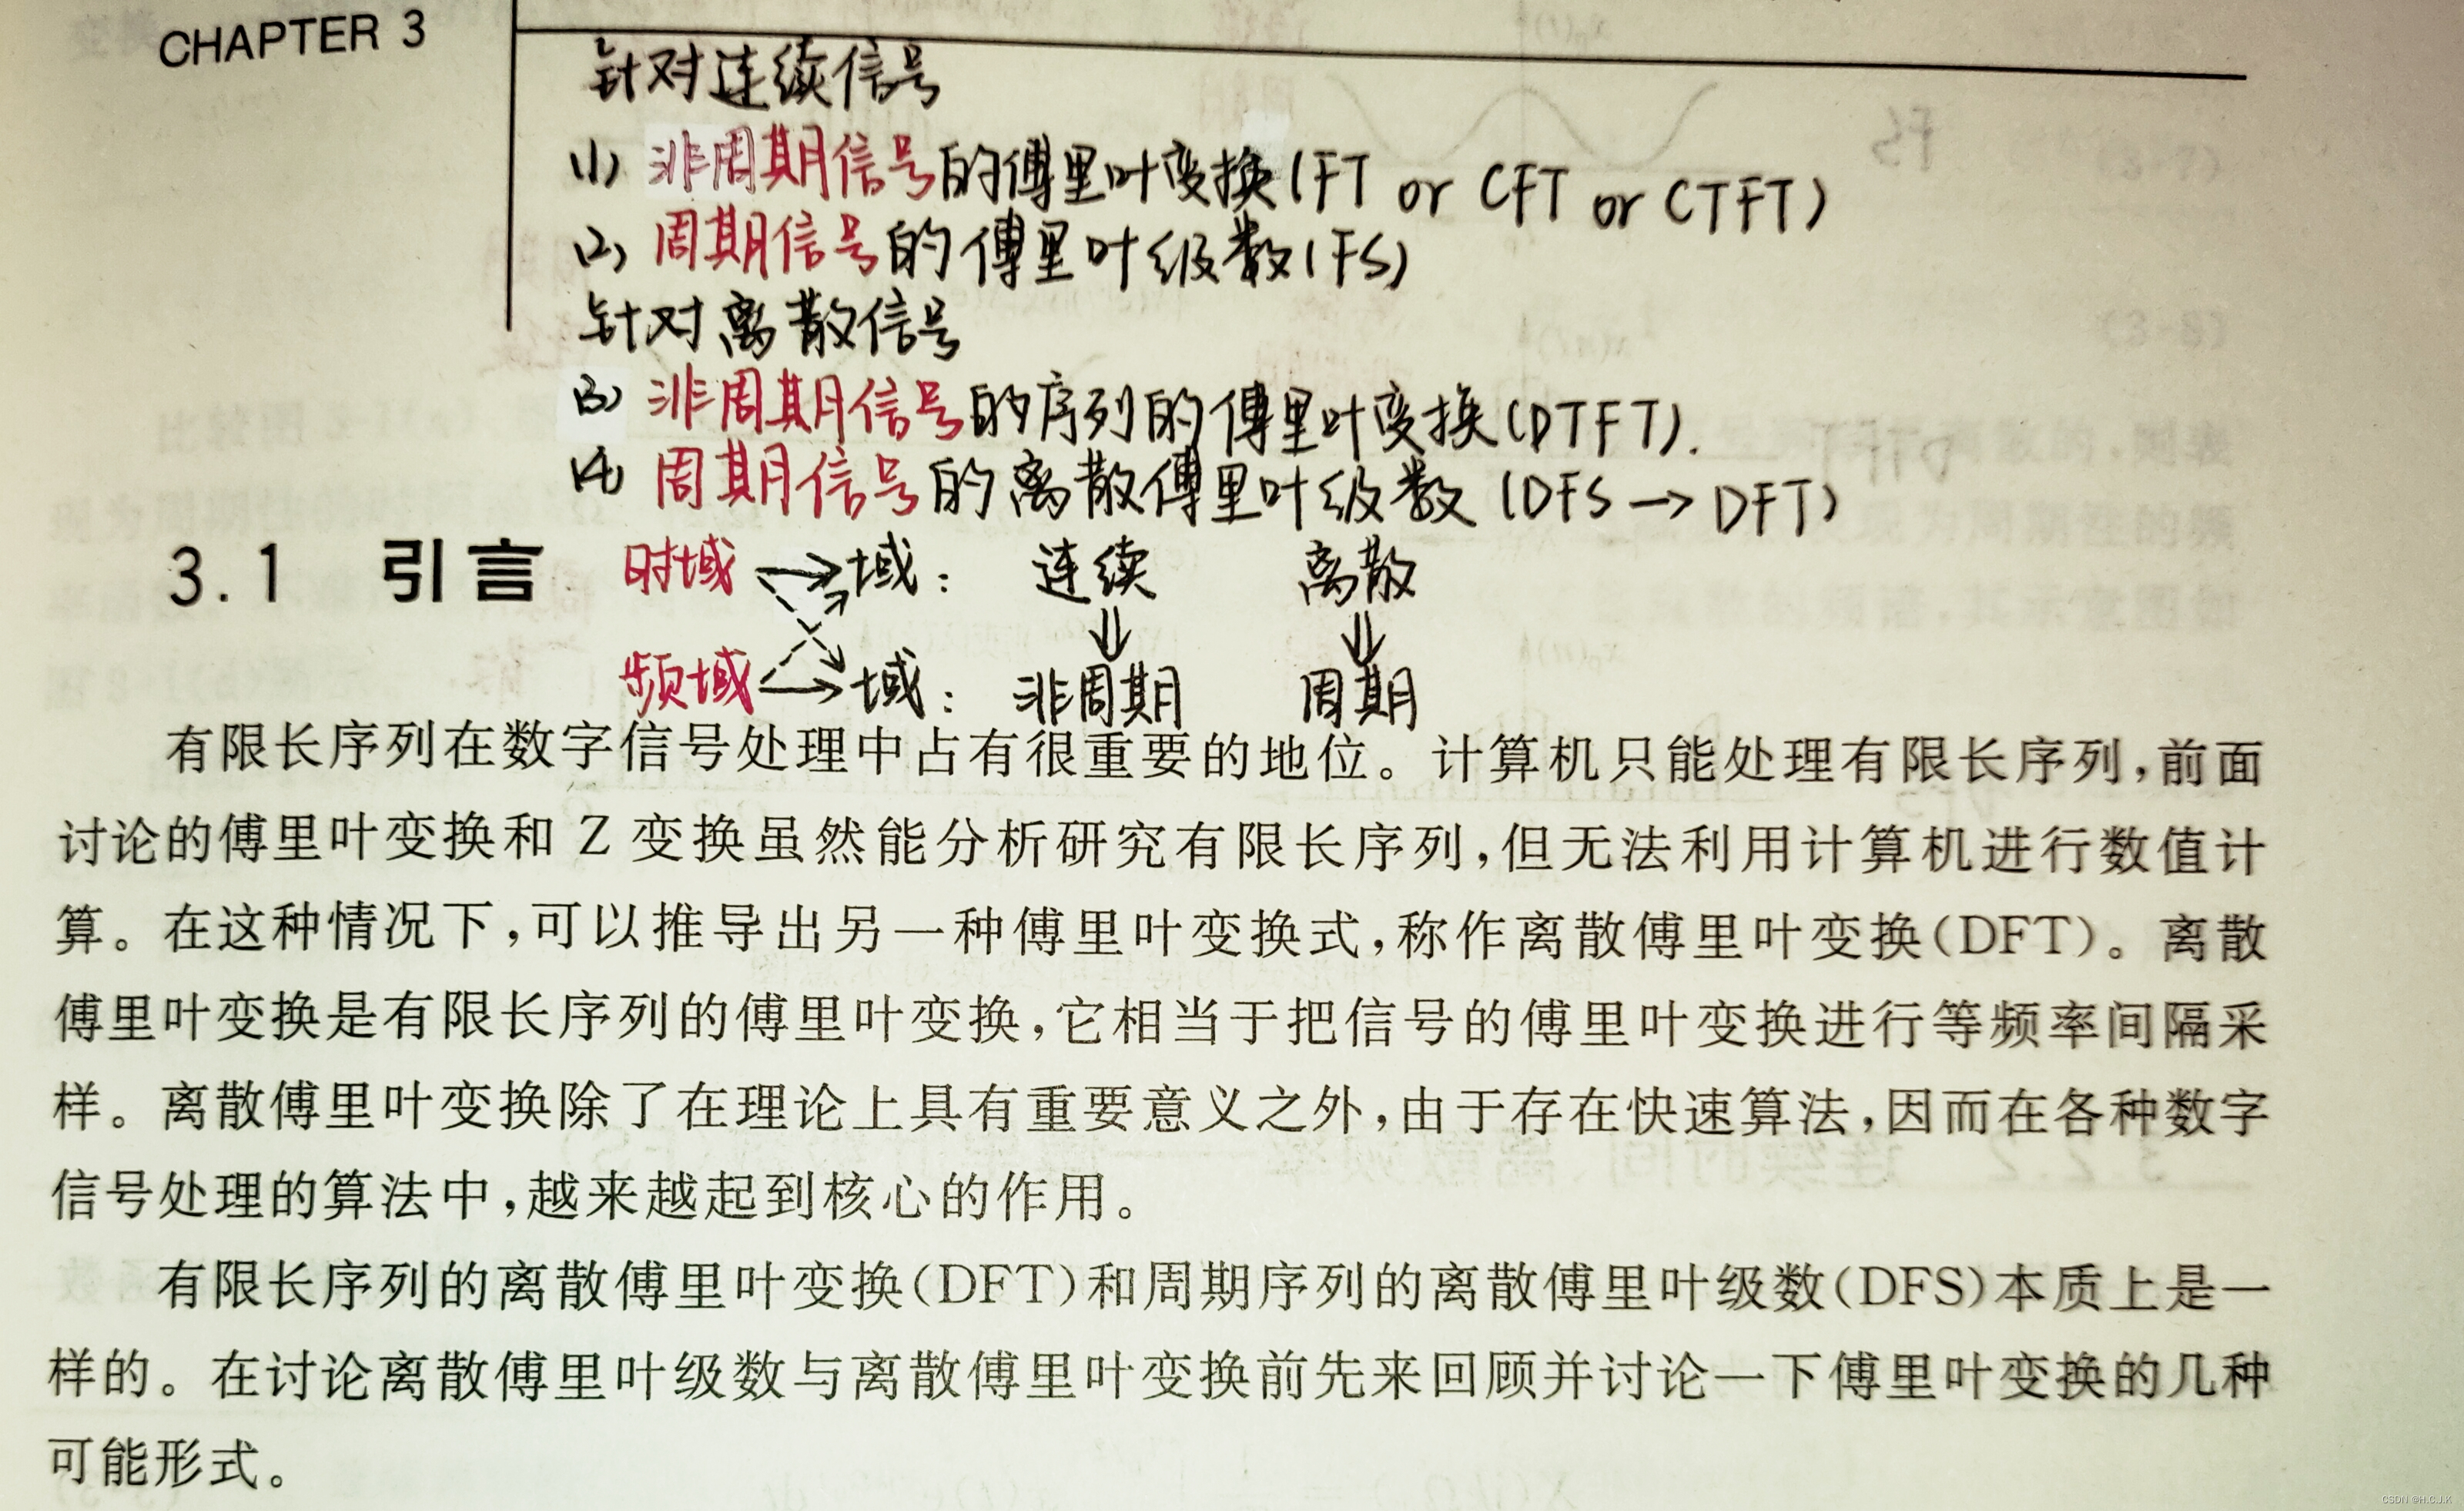 CHAPTER 3
针对连续信号
(1) 非周期信号的傅里叶变换(FT or CFT or CTFT)
(2) 周期信号的傅里叶级数(FS)
针对离散信号
(3) 非周期信号的序列的傅里叶变换(DTFT).
(4) 周期信号的离散傅里叶级数(DFS→DFT)
3.1 引言
时域 → 域: 连续 离散
⇓ ⇓
频域 → 域: 非周期 周期
有限长序列在数字信号处理中占有很重要的地位。计算机只能处理有限长序列,前面
讨论的傅里叶变换和 Z 变换虽然能分析研究有限长序列,但无法利用计算机进行数值计
算。在这种情况下,可以推导出另一种傅里叶变换式,称作离散傅里叶变换(DFT)。离散
傅里叶变换是有限长序列的傅里叶变换,它相当于把信号的傅里叶变换进行等频率间隔采
样。离散傅里叶变换除了在理论上具有重要意义之外,由于存在快速算法,因而在各种数字
信号处理的算法中,越来越起到核心的作用。
有限长序列的离散傅里叶变换(DFT)和周期序列的离散傅里叶级数(DFS)本质上是一
样的。在讨论离散傅里叶级数与离散傅里叶变换前先来回顾并讨论一下傅里叶变换的几种
可能形式。
CSDN @H.C.J.K